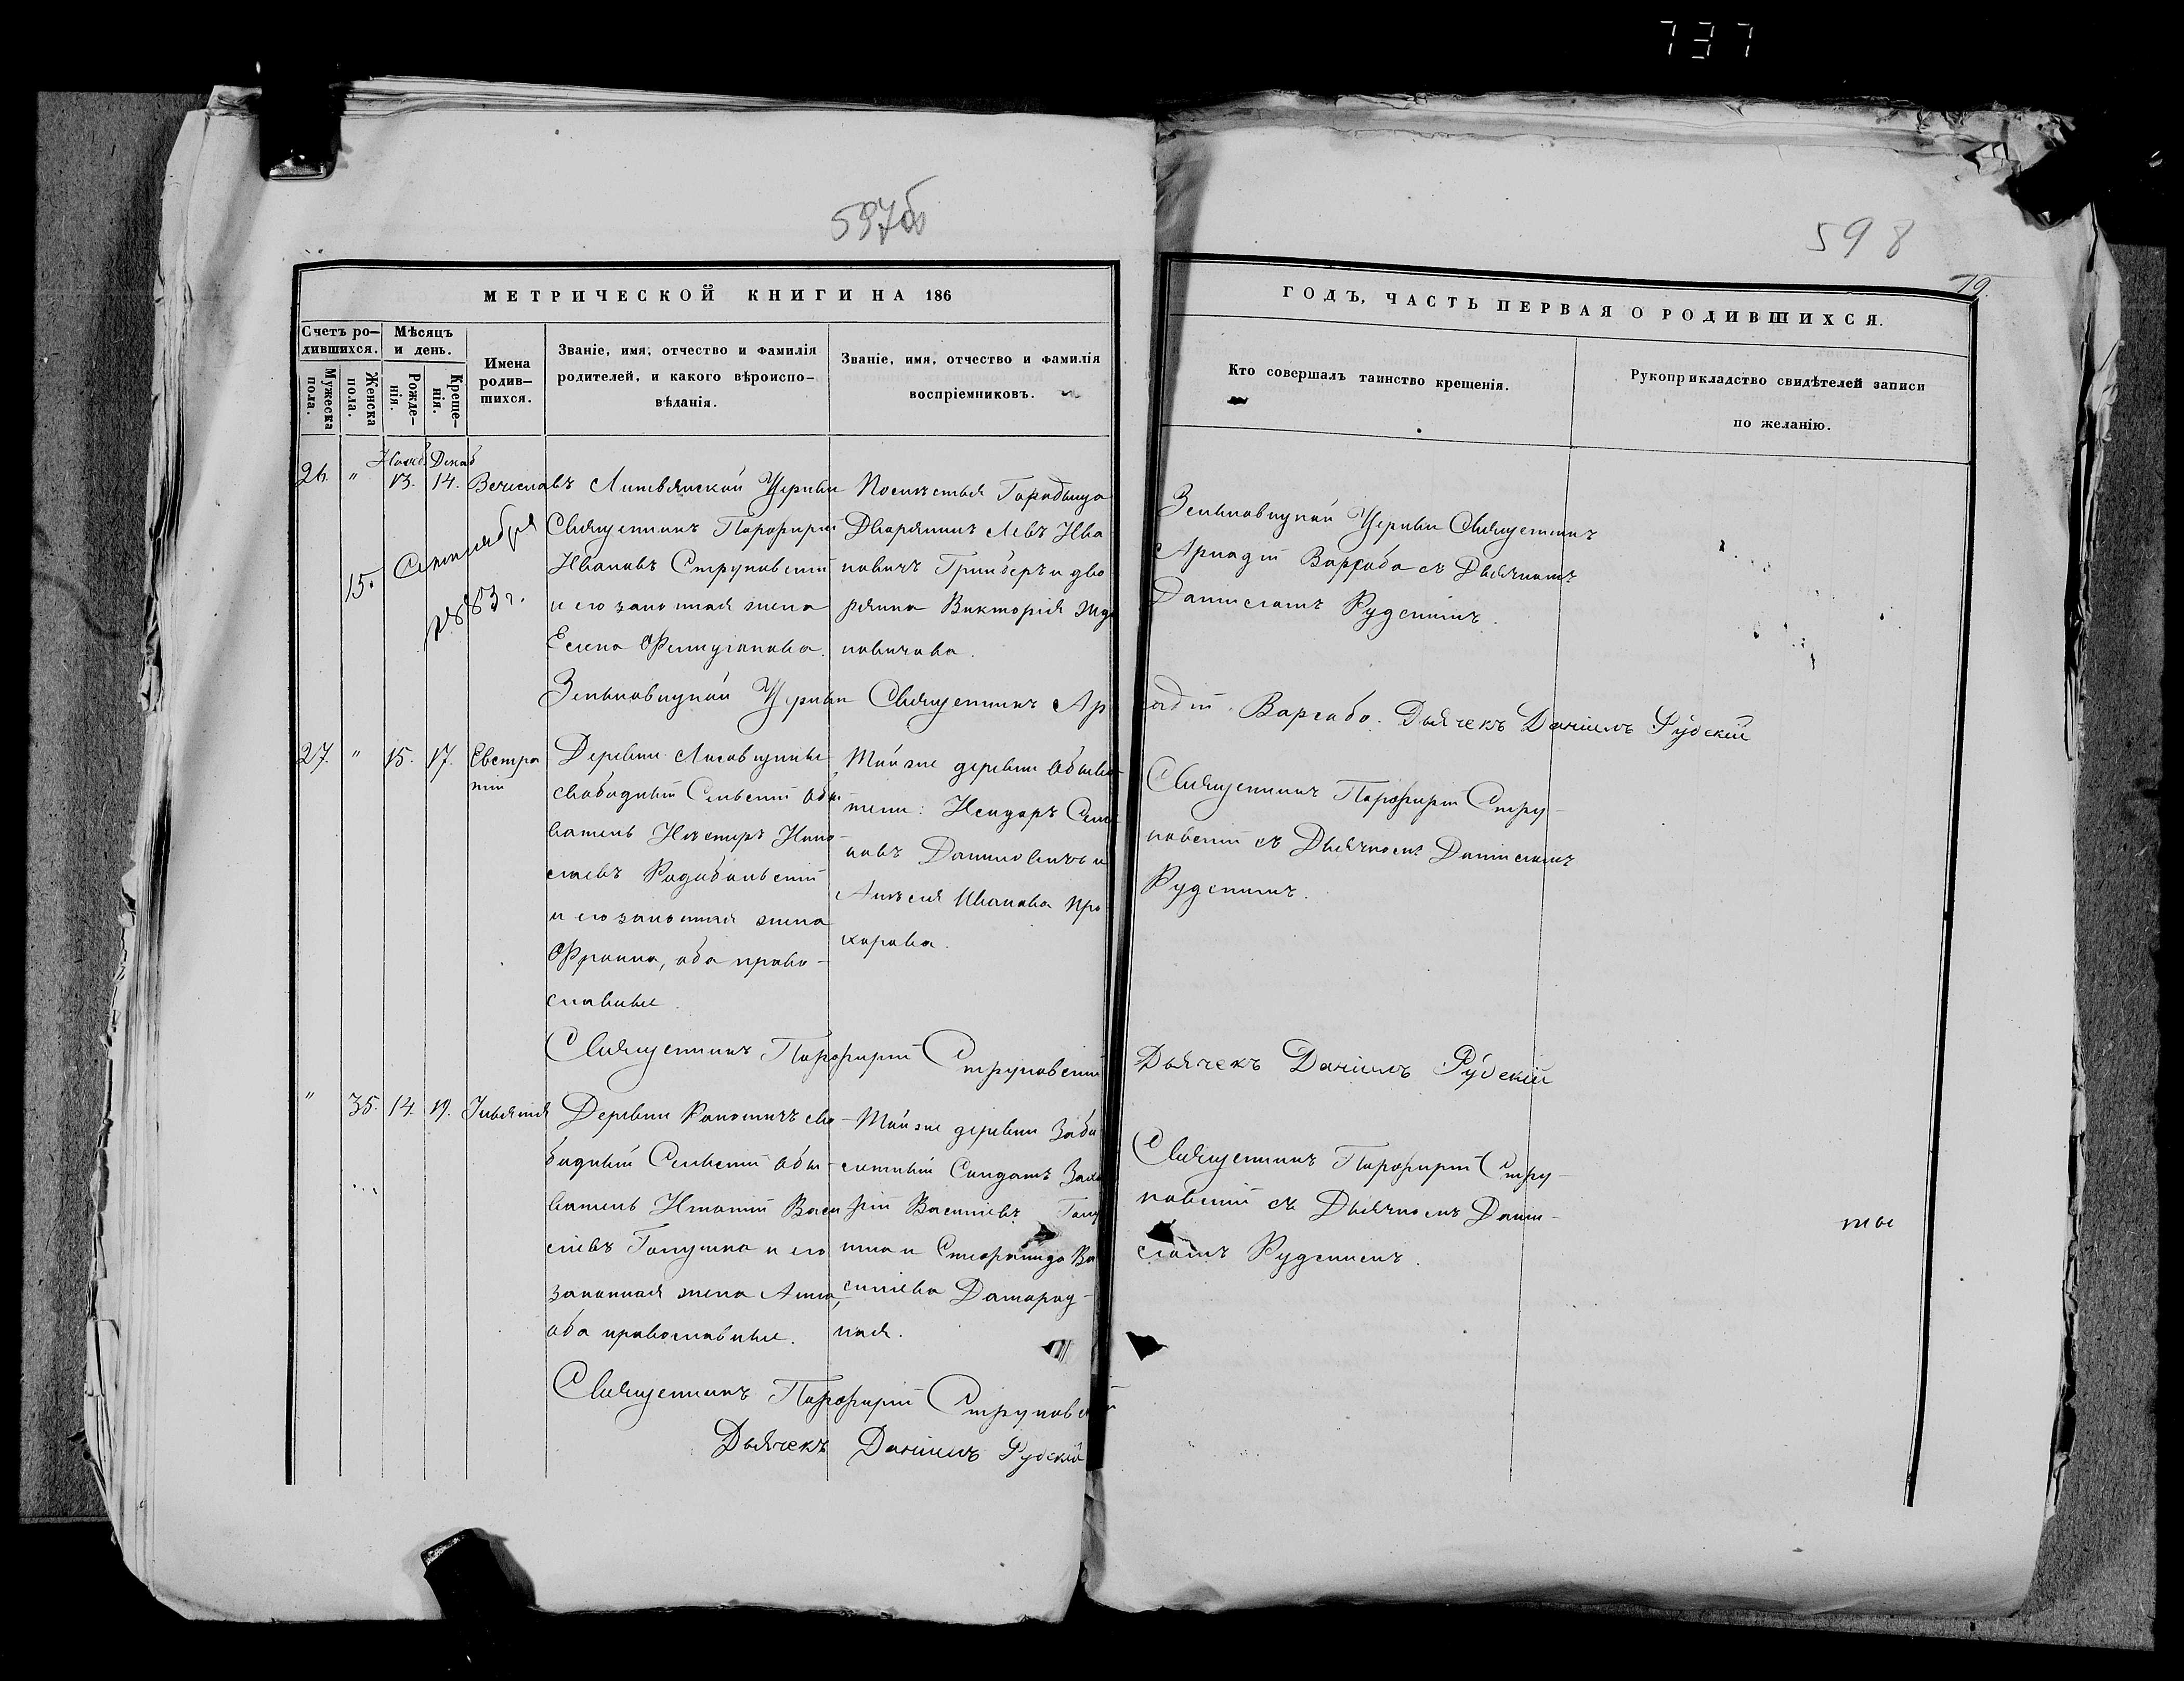 737
597об
598
79.
МЕТРИЧЕСКОЙ КНИГИ НА 186
ГОДЪ, ЧАСТЬ ПЕРВАЯ О РОДИВШИХСЯ.
Счетъ ро-
дившихся.
Мужеска
пола.
Женска
пола.
Мѣсяцъ
и день.
Рожде-
нія.
Креще-
нія.
Имена
родив-
шихся.
Званіе, имя, отчество и фамилія
родителей, и какого вѣроиспо-
вѣданія.
Званіе, имя, отчество и фамилія
воспріемниковъ.
Кто совершалъ таинство крещенія.
Рукоприкладство свидѣтелей записи
по желанію.
Нояб. Декаб
26. " 13. 14. Вечеславъ
15. Сентября
1883 г.
Литвянской Церкви
Священникъ Порфирій
Ивановъ Струковскій
и его законная жена
Елена
Помѣстья Городыща
Дворянинъ Левъ Ива
новичъ и дво
рянка Викторія
Церкви Священникъ
Аркадій Варгабо съ Дьячкомъ
Даниломъ Рудскимъ.
Церкви Священникъ Ар кадій Варгабо. Дьячекъ Даніилъ Рудскій
27. " 15. 17. Евстра
тій
Деревни
свободный Сельскій Обы
ватель Несторъ
и его законная жена
оба право-
славные.
Той же деревни Обыва
тели: Исидоръ
новъ Даниловичъ и
Ивановна Про
хорова.
Священникъ Порфирій Стру-
ковскій съ Дьячкомъ Даниломъ
Рудскимъ.
Священникъ Порфирій Струковскій Дьячекъ Даніилъ Рудскій
" 35. 14. 19. Іуліянія
Деревни сво-
бодный Сельскій Обы-
ватель Игнатій Васи
ліевъ Галушка и его
законная жена Анна,
оба православные.
Той же деревни
Солдатъ Заха
рій Василіевъ Галу
шка и Степанида Ва
силіева Домарац-
кая.
Священникъ Порфирій Стру-
ковскій съ Дьячкомъ Дани-
ломъ Рудскимъ.
Священникъ Порфирій Струковскій
Дьячекъ Даніилъ Рудскій